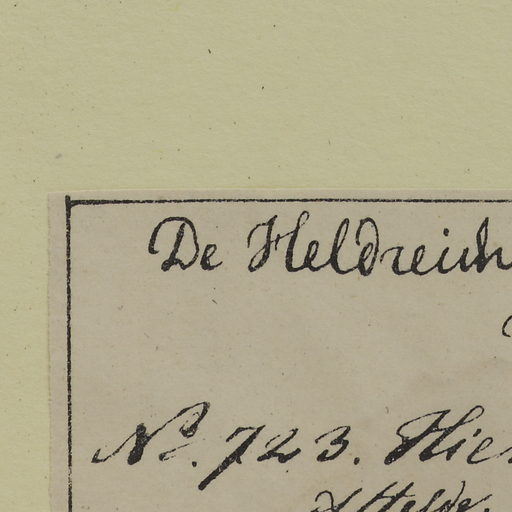 De Heldreich
No. 723. Hie